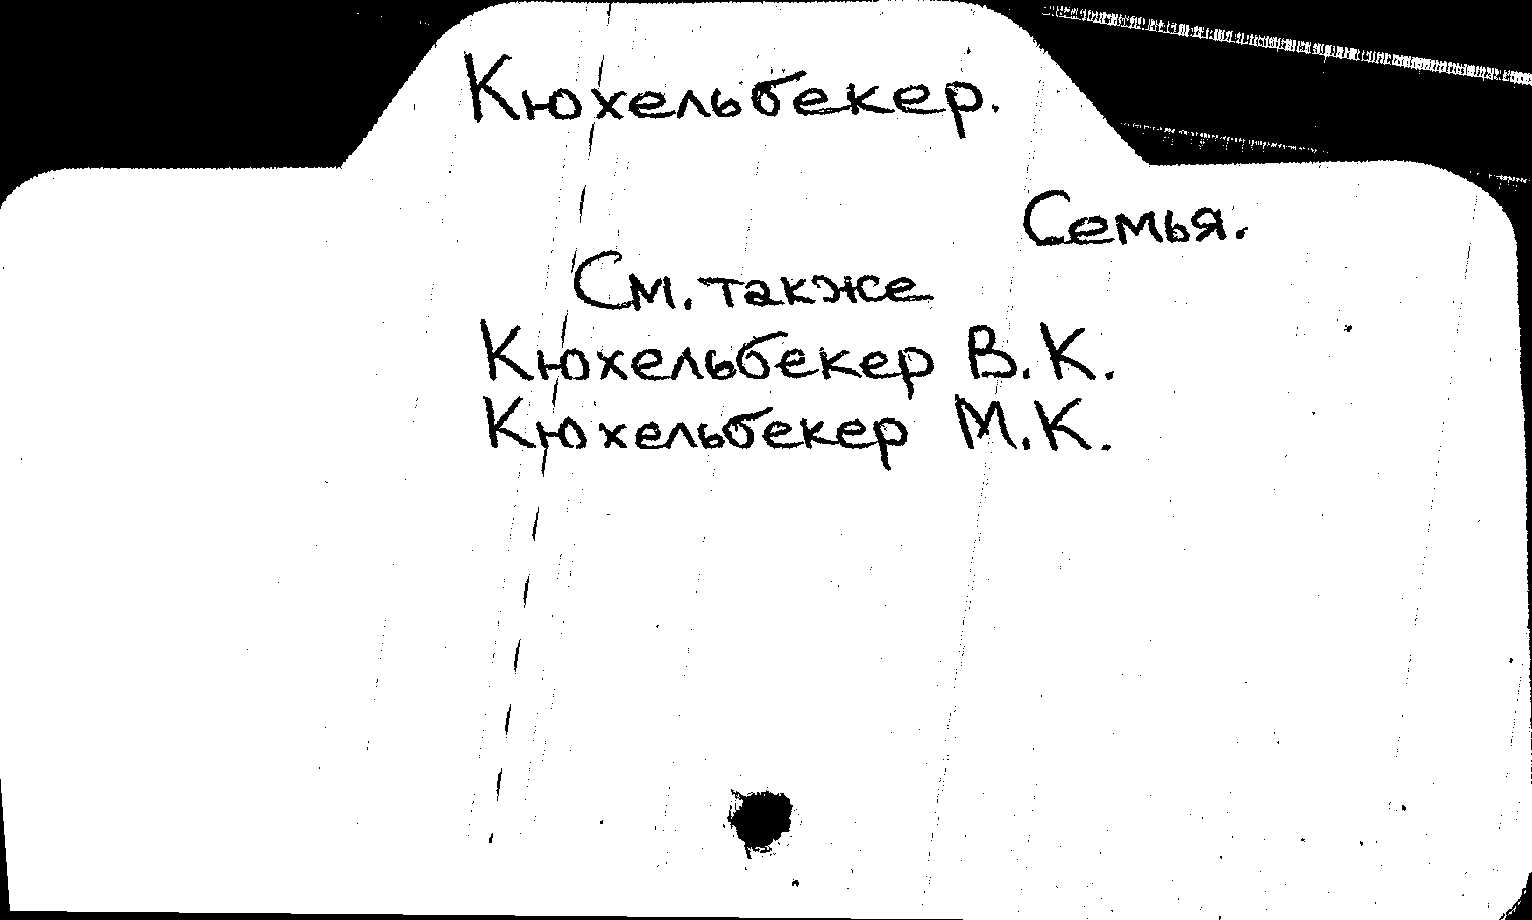 Кюхельбекер.
Семья.
См. также
Кюхельбекер В. К.
Кюхельбекер М. К.